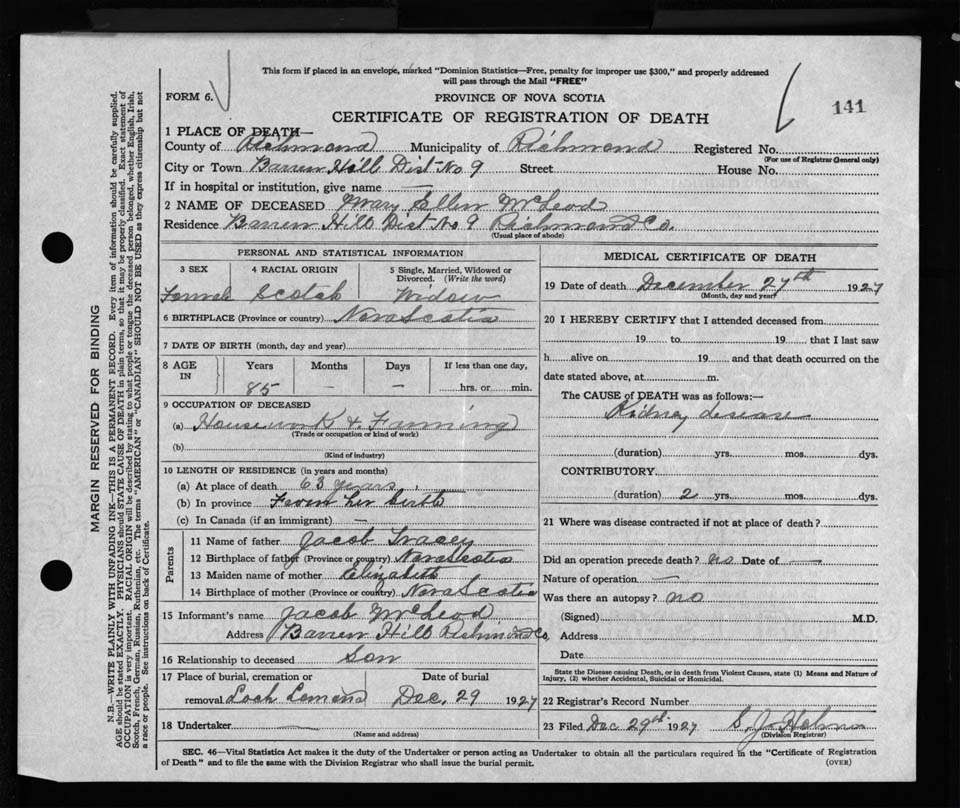 This form if placed in an envelope, marked "Dominion Statistics—Free, penalty for improper use $300," and properly addressed
will pass through the Mail "FREE"
FORM 6.
PROVINCE OF NOVA SCOTIA
141
CERTIFICATE OF REGISTRATION OF DEATH
1 PLACE OF DEATH—
County of Richmond Municipality of Richmond Registered No.
(For use of Registrar General only)
City or Town Barren Hill Dist No 9 Street House No.
If in hospital or institution, give name —
2 NAME OF DECEASED Mary Ellen McLeod
Residence Barren Hill Dist No 9 Richmond Co.
(Usual place of abode)
PERSONAL AND STATISTICAL INFORMATION
3 SEX 4 RACIAL ORIGIN 5 Single, Married, Widowed or
Divorced. (Write the word)
Female Scotch Widow
6 BIRTHPLACE (Province or country) Nova Scotia
7 DATE OF BIRTH (month, day and year)
8 AGE IN Years Months Days If less than one day,
85 — — hrs. or min.
9 OCCUPATION OF DECEASED
(a) Housework & Farming
(Trade or occupation or kind of work)
(b)
(Kind of industry)
10 LENGTH OF RESIDENCE (in years and months)
(a) At place of death 63 years
(b) In province From her birth
(c) In Canada (if an immigrant) —
Parents
11 Name of father Jacob Tracey
12 Birthplace of father (Province or country) Nova Scotia
13 Maiden name of mother Elizabeth
14 Birthplace of mother (Province or country) Nova Scotia
15 Informant's name Jacob McLeod
Address Barren Hill Richmond Co,
16 Relationship to deceased Son
17 Place of burial, cremation or Date of burial
removal Loch Lomond Dec. 29 1927
18 Undertaker
(Name and address)
MEDICAL CERTIFICATE OF DEATH
19 Date of death December 27th 1927
(Month, day and year)
20 I HEREBY CERTIFY that I attended deceased from
19 to 19 that I last saw
h alive on 19 and that death occurred on the
date stated above, at m.
The CAUSE OF DEATH was as follows:—
Kidney desease
(duration) yrs. mos. dys.
CONTRIBUTORY
(duration) 2 yrs. mos. dys.
21 Where was disease contracted if not at place of death?
Did an operation precede death? no Date of —
Nature of operation —
Was there an autopsy? no
(Signed) M.D.
Address
Date
State the Disease causing Death, or in death from Violent Causes, state (1) Means and Nature of
Injury, (2) whether Accidental, Suicidal or Homicidal.
22 Registrar's Record Number
23 Filed Dec 29th 1927 S. J.
(Division Registrar)
SEC. 46—Vital Statistics Act makes it the duty of the Undertaker or person acting as Undertaker to obtain all the particulars required in the "Certificate of Registration
of Death" and to file the same with the Division Registrar who shall issue the burial permit. (OVER)
MARGIN RESERVED FOR BINDING
N.B.—WRITE PLAINLY WITH UNFADING INK—THIS IS A PERMANENT RECORD. Every item of information should be carefully supplied.
AGE should be stated EXACTLY. PHYSICIANS should STATE CAUSE OF DEATH in plain terms, so that it may be properly classified. Exact statement of
OCCUPATION is very important. RACIAL ORIGIN will be described by stating to what people or tongue the deceased person belonged, whether English, Irish,
Scotch, French, German, Russian, Ruthenian, etc. The terms "AMERICAN" or "CANADIAN" SHOULD NOT BE USED as they express citizenship but not
a race or people. See instructions on back of Certificate.